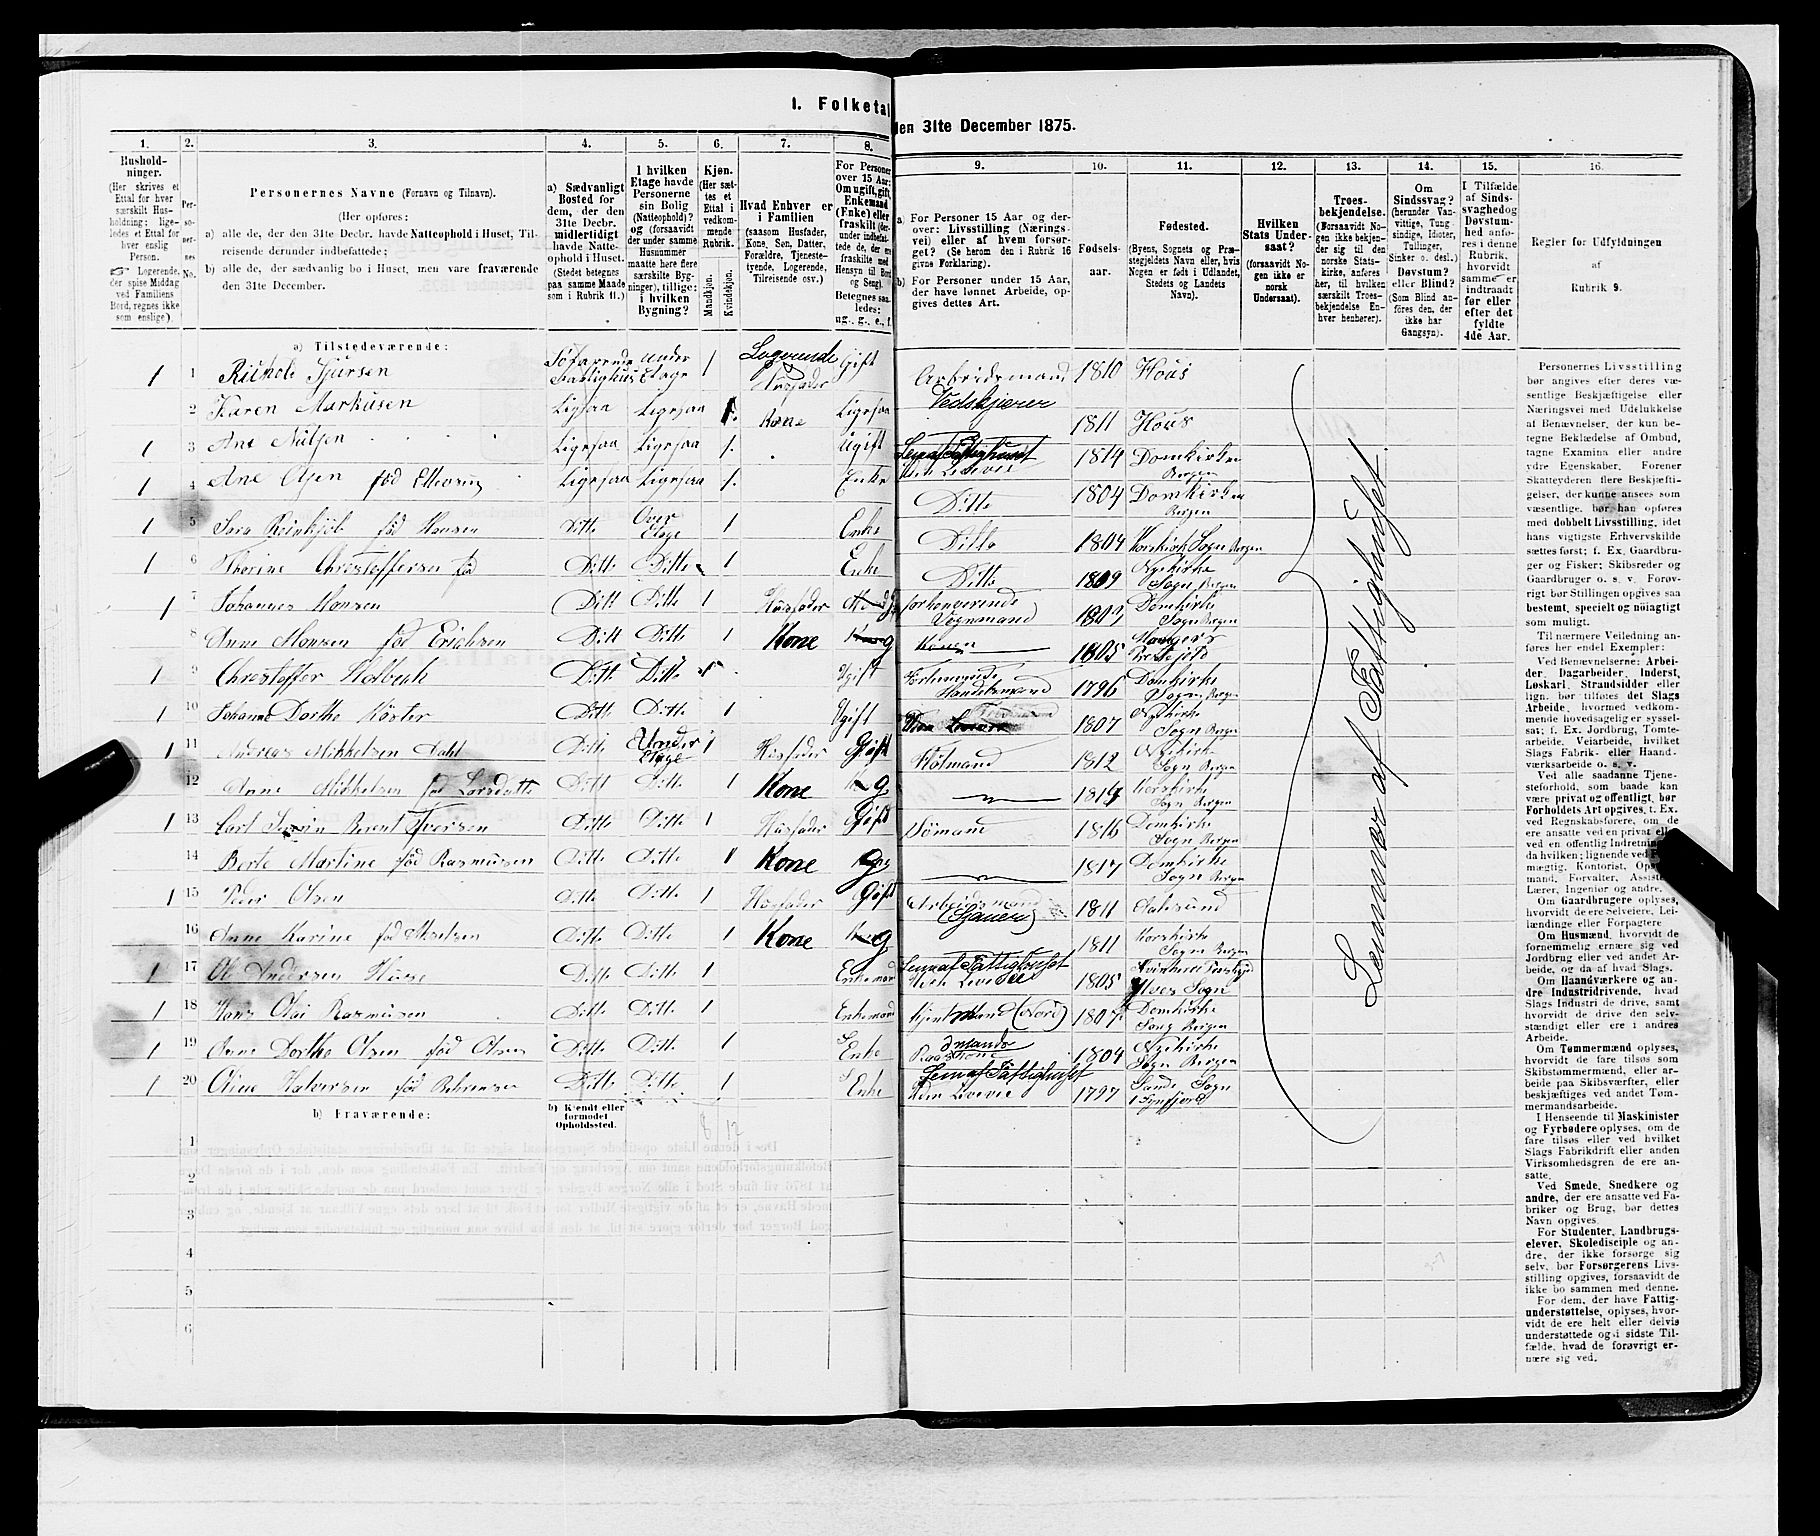 1. Folketal den 31te December 1875.
1.
Husholdninger.
(Her skrives et
Ettal for hver
særskilt Husholdning;
ligeledes et Ettal for
hver enslig
Person.
Logerende,
der spise Middag
ved Familiens
Bord, regnes ikke
som enslige).
2.
Personernes
No.
3.
Personernes Navne (Fornavn og Tilnavn).
(Her opføres:
a) alle de, der den 31te Decbr. havde Natteophold i Huset, Tilreisende derunder indbefattede;
b) alle de, der sædvanlig bo i Huset, men vare fraværende
den 31te December.
4.
a) Sædvanligt
Bosted for
dem, der den
31te Decbr.
midlertidigt
havde Natteophold i Huset.
(Stedet betegnes
paa samme Maade
som i Rubrik 11.)
5.
I hvilken
Etage havde
Personerne
sin Bolig
(Natteophold)?
og (forsaavidt
der under samme
Husnummer
maatte høre flere
særskilte Bygninger), tillige:
i hvilken
Bygning?
6.
Kjøn.
(Her sættes et
Ettal i
vedkommende
Rubrik.
Mandkjøn.
Kvindekjøn.
7.
Hvad Enhver er
i Familien
(saasom Husfader,
Kone, Søn, Datter,
Forældre, Tjenestetyende, Logerende,
Tilreisende osv.)
8.
For Personer
over 15 Aar:
Om ugift, gift,
Enkemand
(Enke) eller
fraskilt
Betegnes saaledes:
ug., g., e., f.
9.
a) For Personer 15 Aar og derover: Livsstilling (Næringsvei) eller af hvem forsørget? (Se herom den i Rubrik 16
givne Forklaring).
b) For Personer under 15 Aar,
der have lønnet Arbeide, opgives dettes Art.
10.
Fødselsaar.
11.
Fødested.
(Byens, Sognets og Præstegjeldets Navn eller, hvis
Nogen er født i Udlandet,
Stedets og Landets
Navn).
12.
Hvilken
Stats Undersaat?
(forsaavidt Nogen ikke er
norsk
Undersaat).
13.
Troesbekjendelse.
(Forsaavidt Nogen ikke bekjender sig til den
norske Statskirke, anføres
her, til hvilken
særskilt Troesbekjendelse Enhver henhører).
14.
Om
Sindssvag?
(herunder Vanvittige, Tungsindige, Idioter,
Tullinger,
Sinker o. desl.)
Døvstum?
eller Blind?
(Som Blind anføres den, der
ikke har
Gangsyn).
15.
I Tilfælde
af Sindssvaghed og
Døvstumhed anføres i denne
Rubrik,
hvorvidt
samme er
indtraadt
før eller
efter det
fyldte
4de Aar.
16.
Regler for Udfyldningen
af
Rubrik 9.
a) Tilstedeværende:
1 1 Sjursen Under Etage 1 Logerende Husfader Gift Arbeidsmand Vedskjærer 1810 Hous
2 Karen Markusen Ligesaa Ligesaa 1. Kone Ligesaa 1811 Hous
1 3 Ane Ligesaa Ligesaa 1. Ugift Lem af Fattighuset Uden Levevei 1814 Domkirken Bergen
1 4 Ane Olsen fød Ligesaa Ligesaa 1. Enke Ditto 1804 Domkirken Bergen
1 5 Sara fød Hansen Ditto Over Etage 1 Enke Ditto 1804 Korskirk Sogn Bergen
1 6 Christoffersen fød Ditto Ditto 1 Enke Ditto 1809 Nykirke Sogn Bergen
1 7 Johannes Monsen Ditt Ditto 1 Husfader g Vognmand Domkirke Sogn Bergen
8 Anne Monsen fød Erichsen Ditt Ditto 1 Kone g Konen 1805 Manger Prestejeld
1 9 Christoffer Ditto Ditto 1 Ugift Handelsmand 1796 Domkirke Sogn Bergen
1 10 Johanne Dorthe Køster Ditto Ditto 1 Ugift 1807 Nykirke Sogn Bergen
1 11 Andreas Mikkelsen Dahl Ditto Under Etage 1 Husfader Gift 1812 Nykirk Sogn Bergen
12 Anne Mikkelsen fød Larsdatter Ditto Ditto 1 Kone g. Korskirk Sogn Bergen
1 13 Carl Berent Iversen Ditto Ditto 1 Husfader Gift Sømand 1816 Domkirke Sogn Bergen
14 Berte Martine fød Rasmussen Ditto Ditto 1 Kone g 1817 Domkirke Sogn Bergen
1 15 Peder Olsen Ditto Ditto 1 Husfader Gift Arbeidsmand (Sjauer) 1811 Aalesund
16 Anne Karine fød Ditto Ditto 1 Kone g 1811 Korskirk Sogn Bergen
1 17 Ole Andersen Ditto Ditto 1 Enkemand Lem af Fattighuset Uden Levevei 1805 Sogn
1 18 Hans Olai Rasmusen Ditto Ditto 1 Enkemand 1807 Domkirke Sogn Bergen
1 19 Anne Dorthe Olsen fød Olsen Ditto Ditto 1 Enke 1804 Nykirke Sogn Bergen
1 20 Oline Halversen fød Ditto Ditto 1 Enke Lem af Fattighuset Uden Levevei 1797 Sande Sogn
Lemmer af Fattighuset
b) Fraværende:
b) Kjendt eller
formodet
Opholdssted.
8 12
1
2
3
4
5
6
Personernes Livsstilling
bør angives efter deres væsentlige Beskjæftigelse eller
Næringsvei med Udelukkelse
af Benævnelser, der kun betegne Beklædelse af Ombud,
tagne Examina eller andre
ydre Egenskaber. Forener
Skatteyderen flere Beskjæftigelser, der kunne ansees som
væsentlige, bør han opføres
med dobbelt Livsstilling, idet
hans vigtigste Erhvervskilde
sættes først; f. Ex. Gaardbruger og Fisker; Skibsreder og
Gaardbruger o. s. v. Forøvrigt bør Stillingen opgives saa
bestemt, specielt og nøiagtigt
som muligt.
Til nærmere Veiledning anføres her endel Exempler:
Ved Benævnelserne: Arbeider, Dagarbeider, Inderst,
Løskarl, Strandsidder eller
lign. bør tilføies det Slags
Arbeide, hvormed vedkommende hovedsagelig er sysselsat; f. Ex. Jordbrug, Tomtearbeide, Veiarbeide, hvilket
Slags Fabrik- eller Haandværksarbeide o. s. v.
Ved alle saadanne Tjenesteforhold, som baade kan
være privat og offentligt, bør
Forholdets Art opgives, t. Ex.
ved Regnskabsførere, om de
ere ansatte ved en privat eller
ved en offentlig Indretning
da hvilken; lignende ved
mægtig, Kontorist,
mand, Forvalter,
Lærer, Ingeniør og andre.
Om Gaardbrugere oplyses,
hvorvidt de ere Selveiere, Leilændinge eller Forpagtere
Om Husmænd, hvorvidt de
fornemmelig ernære sig ved
Jordbrug eller ved andet Arbeide, og da af hvad Slags.
Om Haandværkere og andre Industridrivende, hvad
Slags Industri de drive, samt
hvorvidt de drive den selvstændigt eller ere i andres
Arbeide.
Om Tømmermænd oplyses,
hvorvidt de fare tilsøs som
Skibstømmermænd, eller arbeide paa Skibsværfter, eller
beskjæftiges ved andet Tømmermandsarbeide.
I Henseende til Maskinister
og Fyrbødere oplyses, om de
fare tilsøs eller ved hvilket
Slags Fabrikdrift eller anden
Virksomhedsgren de ere ansatte.
Ved Smede, Snedkere og
andre, der ere ansatte ved Fabriker og Brug, bør dettes
Navn opgives.
For Studenter, Landbrugselever, Skoledisciple og andre, der ikke forsørge sig
selv, bør Forsørgerens Livsstilling opgives, forsaavidt de
ikke bo sammen med denne.
For dem, der have Fattigunderstøttelse, oplyses, hvorvidt de ere helt eller delvis
understøttede og i sidste Tilfælde, hvad de forøvrigt ernære sig ved.